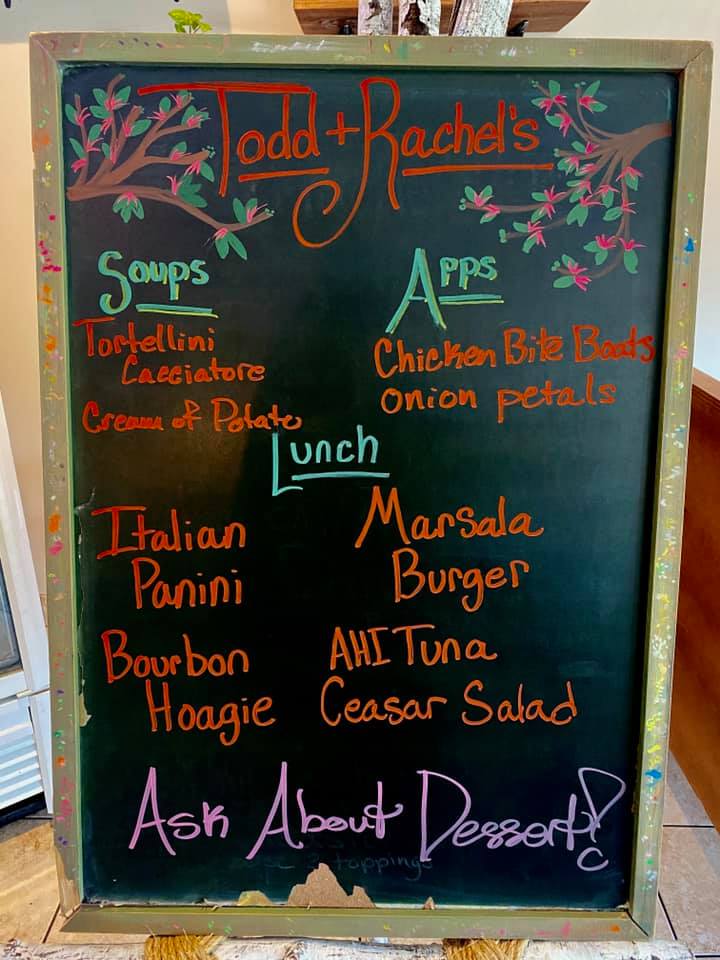 Todd + Rachel's
Soups
Tortellini
Cacciatore
Cream of Potato
Apps
Chicken Bite Boats
onion petals
Lunch
Italian
Panini
Marsala
Burger
Bourbon
Hoagie
AHI Tuna
Ceasar Salad
Ask About Dessert!
toppings